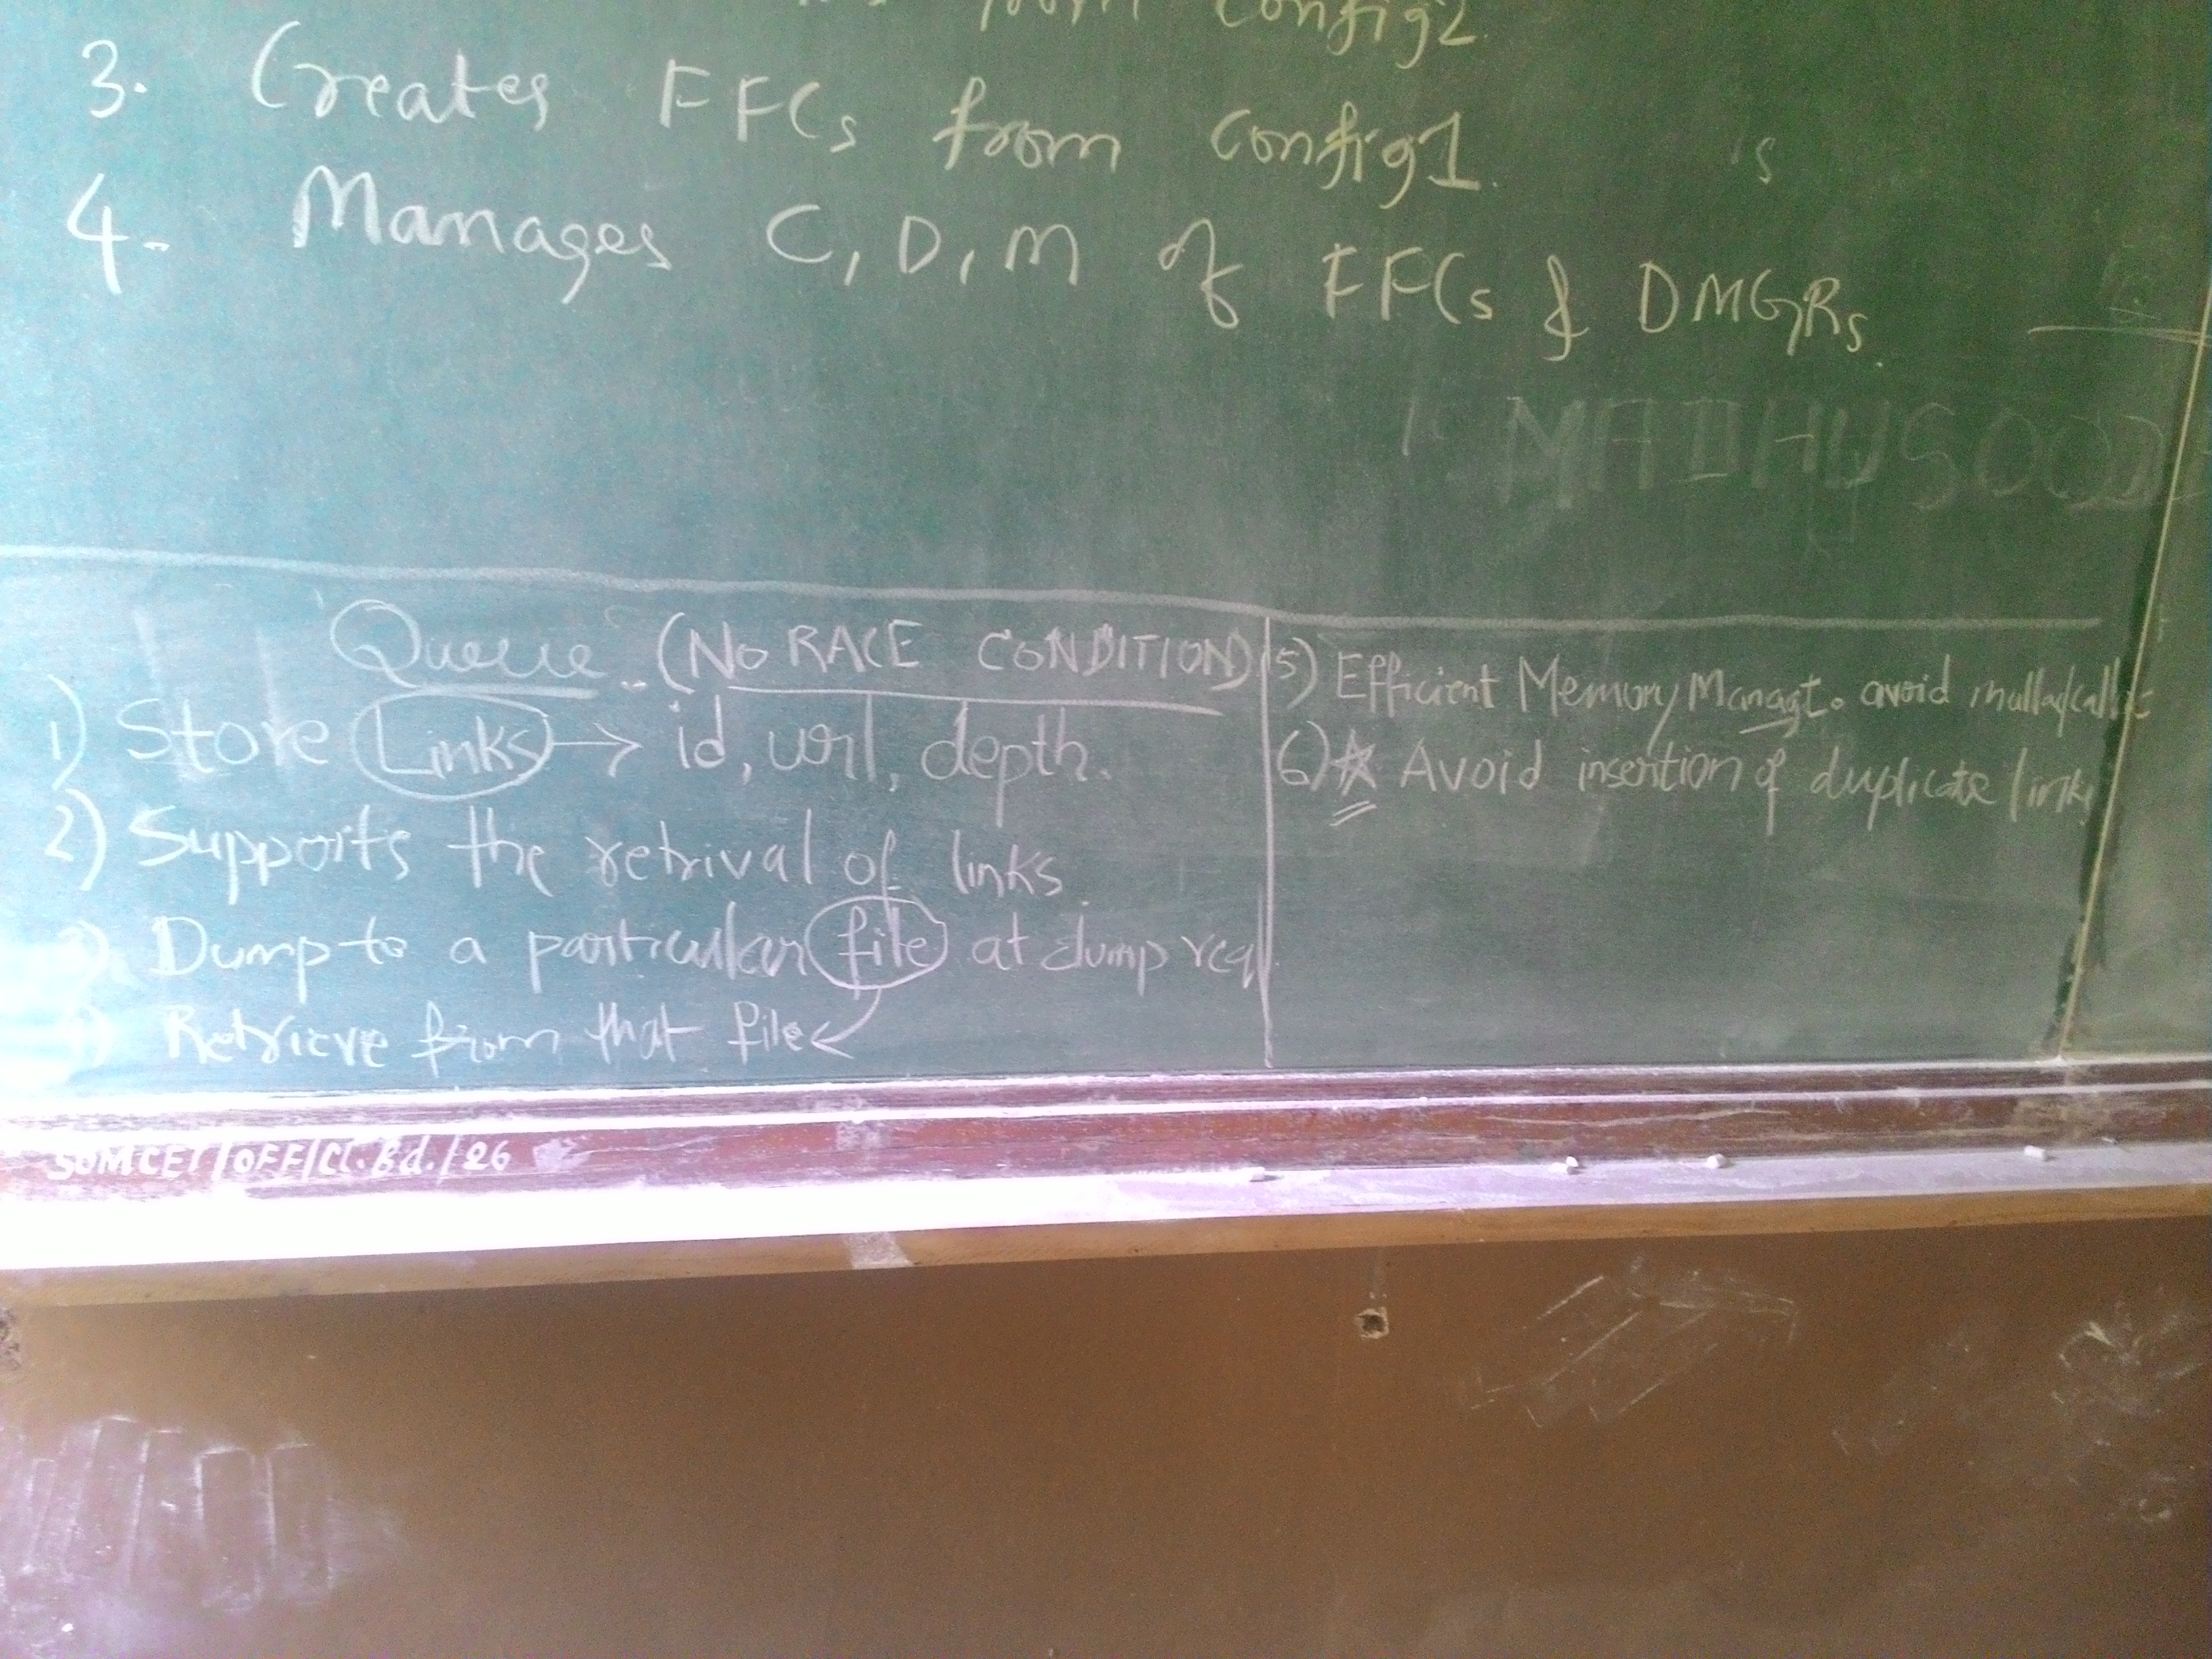 from config2.
3. Creates FFCs from config1.
s
4. Manages C, D, M of FFCs & DMGRs.
MADHUSOOD
Queue (NO RACE CONDITION)
1) Store Links → id, url, depth.
2) Supports the retrival of links
3) Dump to a particular file at dump req
4) Retrieve from that file
5) Efficient Memory Managt. avoid malloc calls
6) Avoid insertion of duplicate links
SDMCET/OFF/Cl.Bd./26